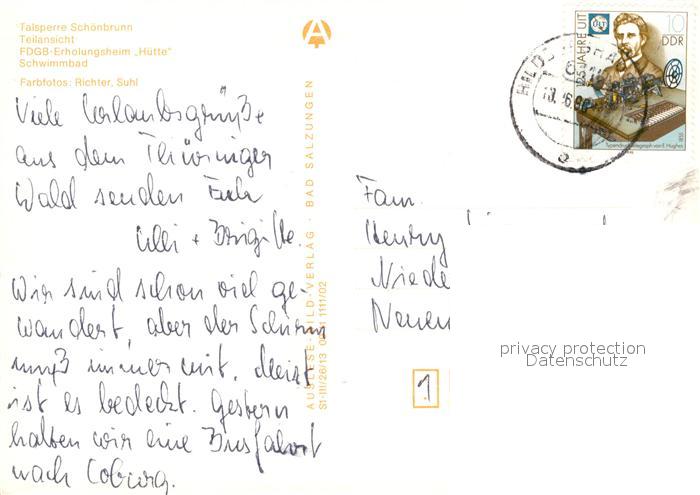 Talsperre Schönbrunn
Teilansicht
FDGB-Erholungsheim „Hütte"
Schwimmbad
Farbfotos: Richter, Suhl
Viele Urlaubsgrüße
aus dem Thüringer
Wald senden Euch
Ulli + Brigitte.
Wir sind schon viel ge-
wandert, aber der Schirm
muß immer mit. Meist
ist es bedeckt. Gestern
hatten wir eine Busfahrt
nach Coburg.
AUSLESE-BILD-VERLAG · BAD SALZUNGEN
S1-III/26/13 1111/02
125 JAHRE UIT
UIT
10
DDR
Typendrucktelegraph von E. Hughes
Fam.
Henry
Niede
Neuen
1
privacy protection
Datenschutz